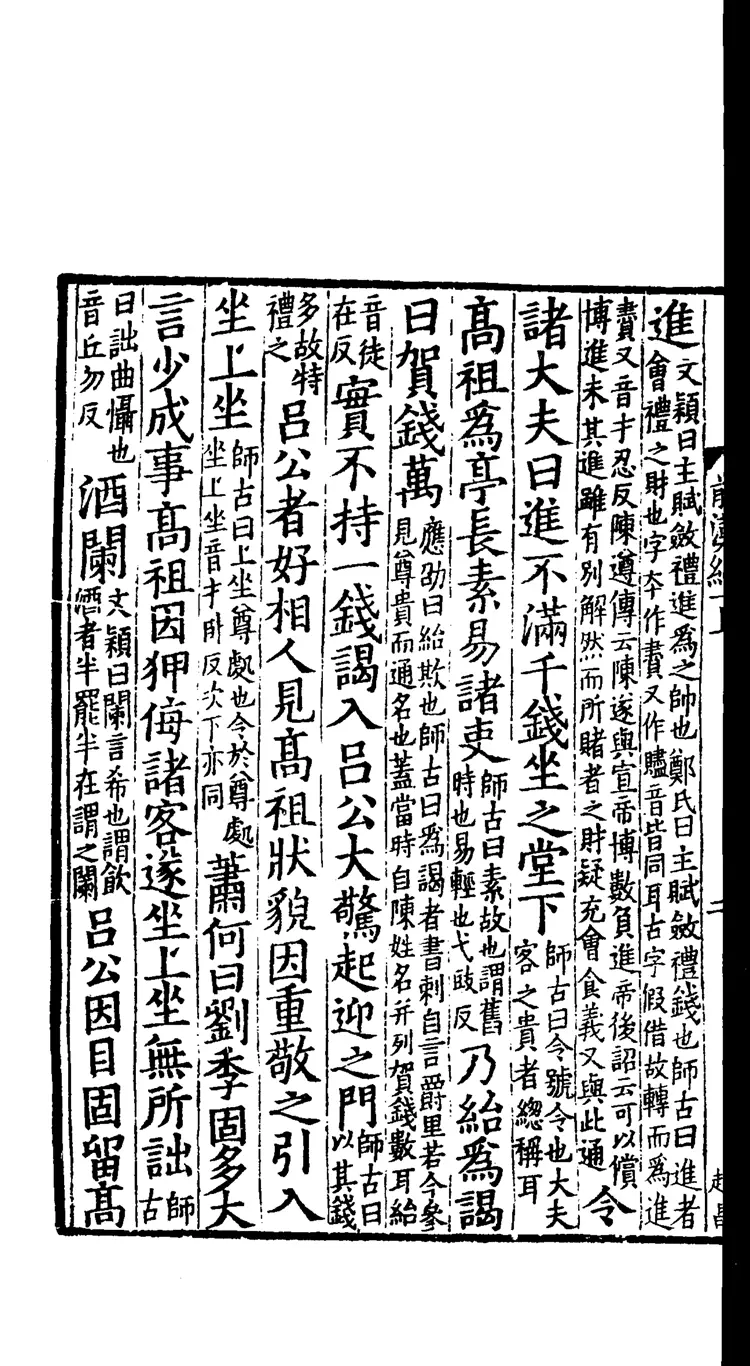 進文穎曰主賦斂禮進爲之帥也鄭氏曰主賦斂禮錢也師古曰進者會禮之財也字本作賮又作贐音皆同耳古字假借故轉而爲進
賮又音才忍反陳遵傳云陳遂與宣帝博數負進帝後詔云可以償博進未其進雖有別解然而所賭者之財疑充會食義又與此通令
諸大夫曰進不滿千錢坐之堂下師古曰令號令也大夫客之貴者總稱耳
髙祖爲亭長素易諸吏師古曰素故也謂舊時也易輕也弋豉反乃紿爲謁
曰賀錢萬應劭曰紿欺也師古曰爲謁者書刺自言爵里若今參見尊貴而通名也蓋當時自陳姓名并列賀錢數耳紿
音徒在反實不持一錢謁入呂公大驚起迎之門師古曰以其錢
多故特禮之呂公者好相人見髙祖狀貌因重敬之引入
坐上坐師古曰上坐尊處也令於尊處坐上坐音才卧反次下亦同蕭何曰劉季固多大
言少成事髙祖因狎侮諸客遂坐上坐無所詘師古
曰詘曲懾也音丘勿反酒闌文穎曰闌言希也謂飲酒者半罷半在謂之闌呂公因目固留髙